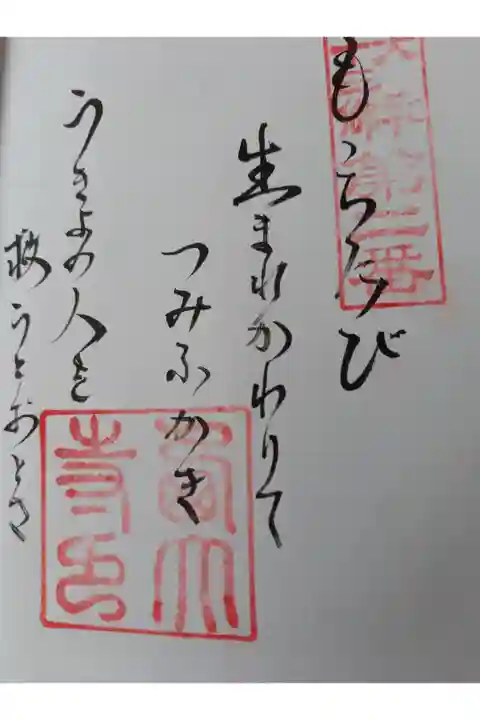 もゝちたび
生まれかわりて
つみふかき
うきよの人を
救うとおとさ
第二番
寺印